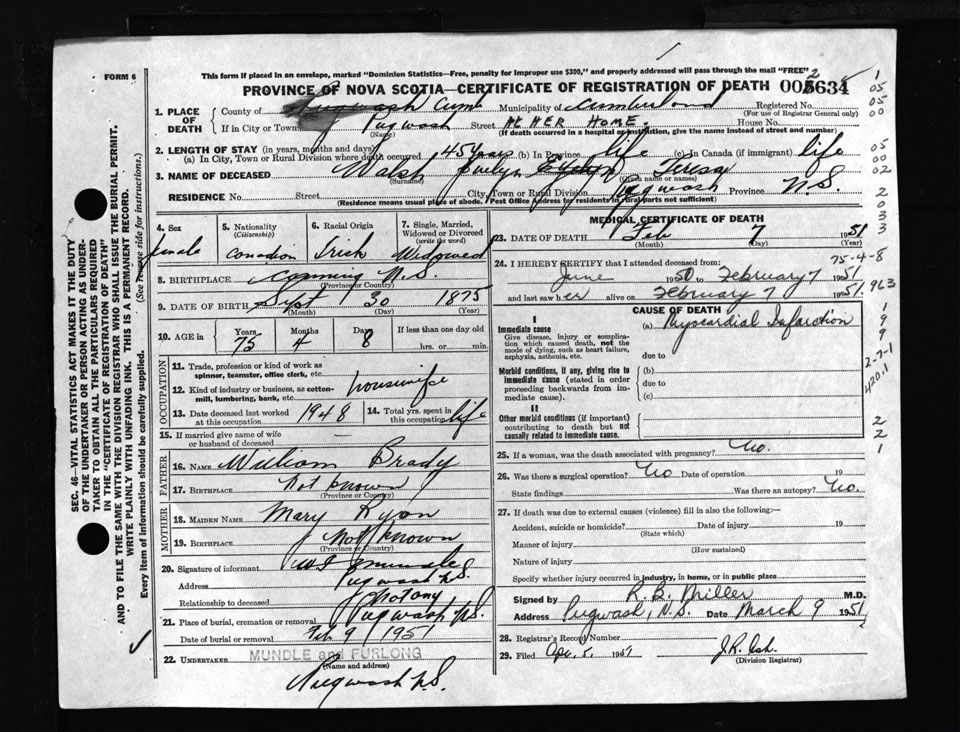 FORM 6
This form if placed in an envelope, marked "Dominion Statistics—Free, penalty for improper use $300," and properly addressed will pass through the mail "FREE"
PROVINCE OF NOVA SCOTIA—CERTIFICATE OF REGISTRATION OF DEATH 005634
1. PLACE OF DEATH County of Pugwash Cumb Municipality of Cumberland Registered No.
(For use of Registrar General only)
If in City or Town Pugwash Street AT HER HOME. House No.
(Name) (If death occurred in a hospital or institution, give the name instead of street and number)
2. LENGTH OF STAY (in years, months and days)
(a) In City, Town or Rural Division where death occurred 45 Years (b) In Province life (c) In Canada (if immigrant) life
3. NAME OF DECEASED Walsh Evelyn Teresa
(Surname) (Given name or names)
RESIDENCE No. Street City, Town or Rural Division Pugwash Province N.S.
(Residence means usual place of abode. Post Office Address for residents of rural parts not sufficient)
4. Sex female
5. Nationality (Citizenship) Canadian
6. Racial Origin Irish
7. Single, Married, Widowed or Divorced (write the word) Widowed
8. BIRTHPLACE Canning N.S.
(Province or Country)
9. DATE OF BIRTH Sept 30 1875
(Month) (Day) (Year)
10. AGE in Years 75 Months 4 Days 8 If less than one day old
hrs. or min.
OCCUPATION
11. Trade, profession or kind of work as spinner, teamster, office clerk, etc.
12. Kind of industry or business, as cotton-mill, lumbering, bank, etc. housewife
13. Date deceased last worked at this occupation 1948
14. Total yrs. spent in this occupation life
15. If married give name of wife or husband of deceased
FATHER
16. NAME William Brady
17. BIRTHPLACE Not known
(Province or Country)
MOTHER
18. MAIDEN NAME Mary Ryan
19. BIRTHPLACE Not known
(Province or Country)
20. Signature of informant
Address Pugwash N.S.
Relationship to deceased
21. Place of burial, cremation or removal Pugwash N.S.
Date of burial or removal Feb 9 1951
22. UNDERTAKER MUNDLE and FURLONG
(Name and address)
Pugwash N.S.
MEDICAL CERTIFICATE OF DEATH
23. DATE OF DEATH Feb 7 1951
(Month) (Day) (Year)
75-4-8
24. I HEREBY CERTIFY that I attended deceased from:
June 1950 to February 7 1951
and last saw her alive on February 7 1951.
963
CAUSE OF DEATH
I
Immediate cause (a) Myocardial Infarction
Give disease, injury or complication which caused death, not the mode of dying, such as heart failure, asphyxia, asthenia, etc.
due to
Morbid conditions, if any, giving rise to immediate cause (stated in order proceeding backwards from immediate cause).
(b)
due to
(c)
II
Other morbid conditions (if important) contributing to death but not causally related to immediate cause.
25. If a woman, was the death associated with pregnancy? No.
26. Was there a surgical operation? No Date of operation 19
State findings Was there an autopsy? No.
27. If death was due to external causes (violence) fill in also the following:—
Accident, suicide or homicide? Date of injury 19
(State which)
Manner of injury
(How sustained)
Nature of injury
Specify whether injury occurred in industry, in home, or in public place
Signed by R. B. Miller M.D.
Address Pugwash, N.S. Date March 9 1951
28. Registrar's Record Number
29. Filed Apr. 5, 1951 J.R. Ash.
(Division Registrar)
SEC. 46—VITAL STATISTICS ACT MAKES IT THE DUTY OF THE UNDERTAKER OR PERSON ACTING AS UNDERTAKER TO OBTAIN ALL THE PARTICULARS REQUIRED IN THE "CERTIFICATE OF REGISTRATION OF DEATH" AND TO FILE THE SAME WITH THE DIVISION REGISTRAR WHO SHALL ISSUE THE BURIAL PERMIT.
WRITE PLAINLY WITH UNFADING INK. THIS IS A PERMANENT RECORD.
Every item of information should be carefully supplied. (See reverse side for instructions.)
2
1
05
05
00
05
00
02
2
0
3
3
1
9
9
2-7-1
420.1
2
2
1